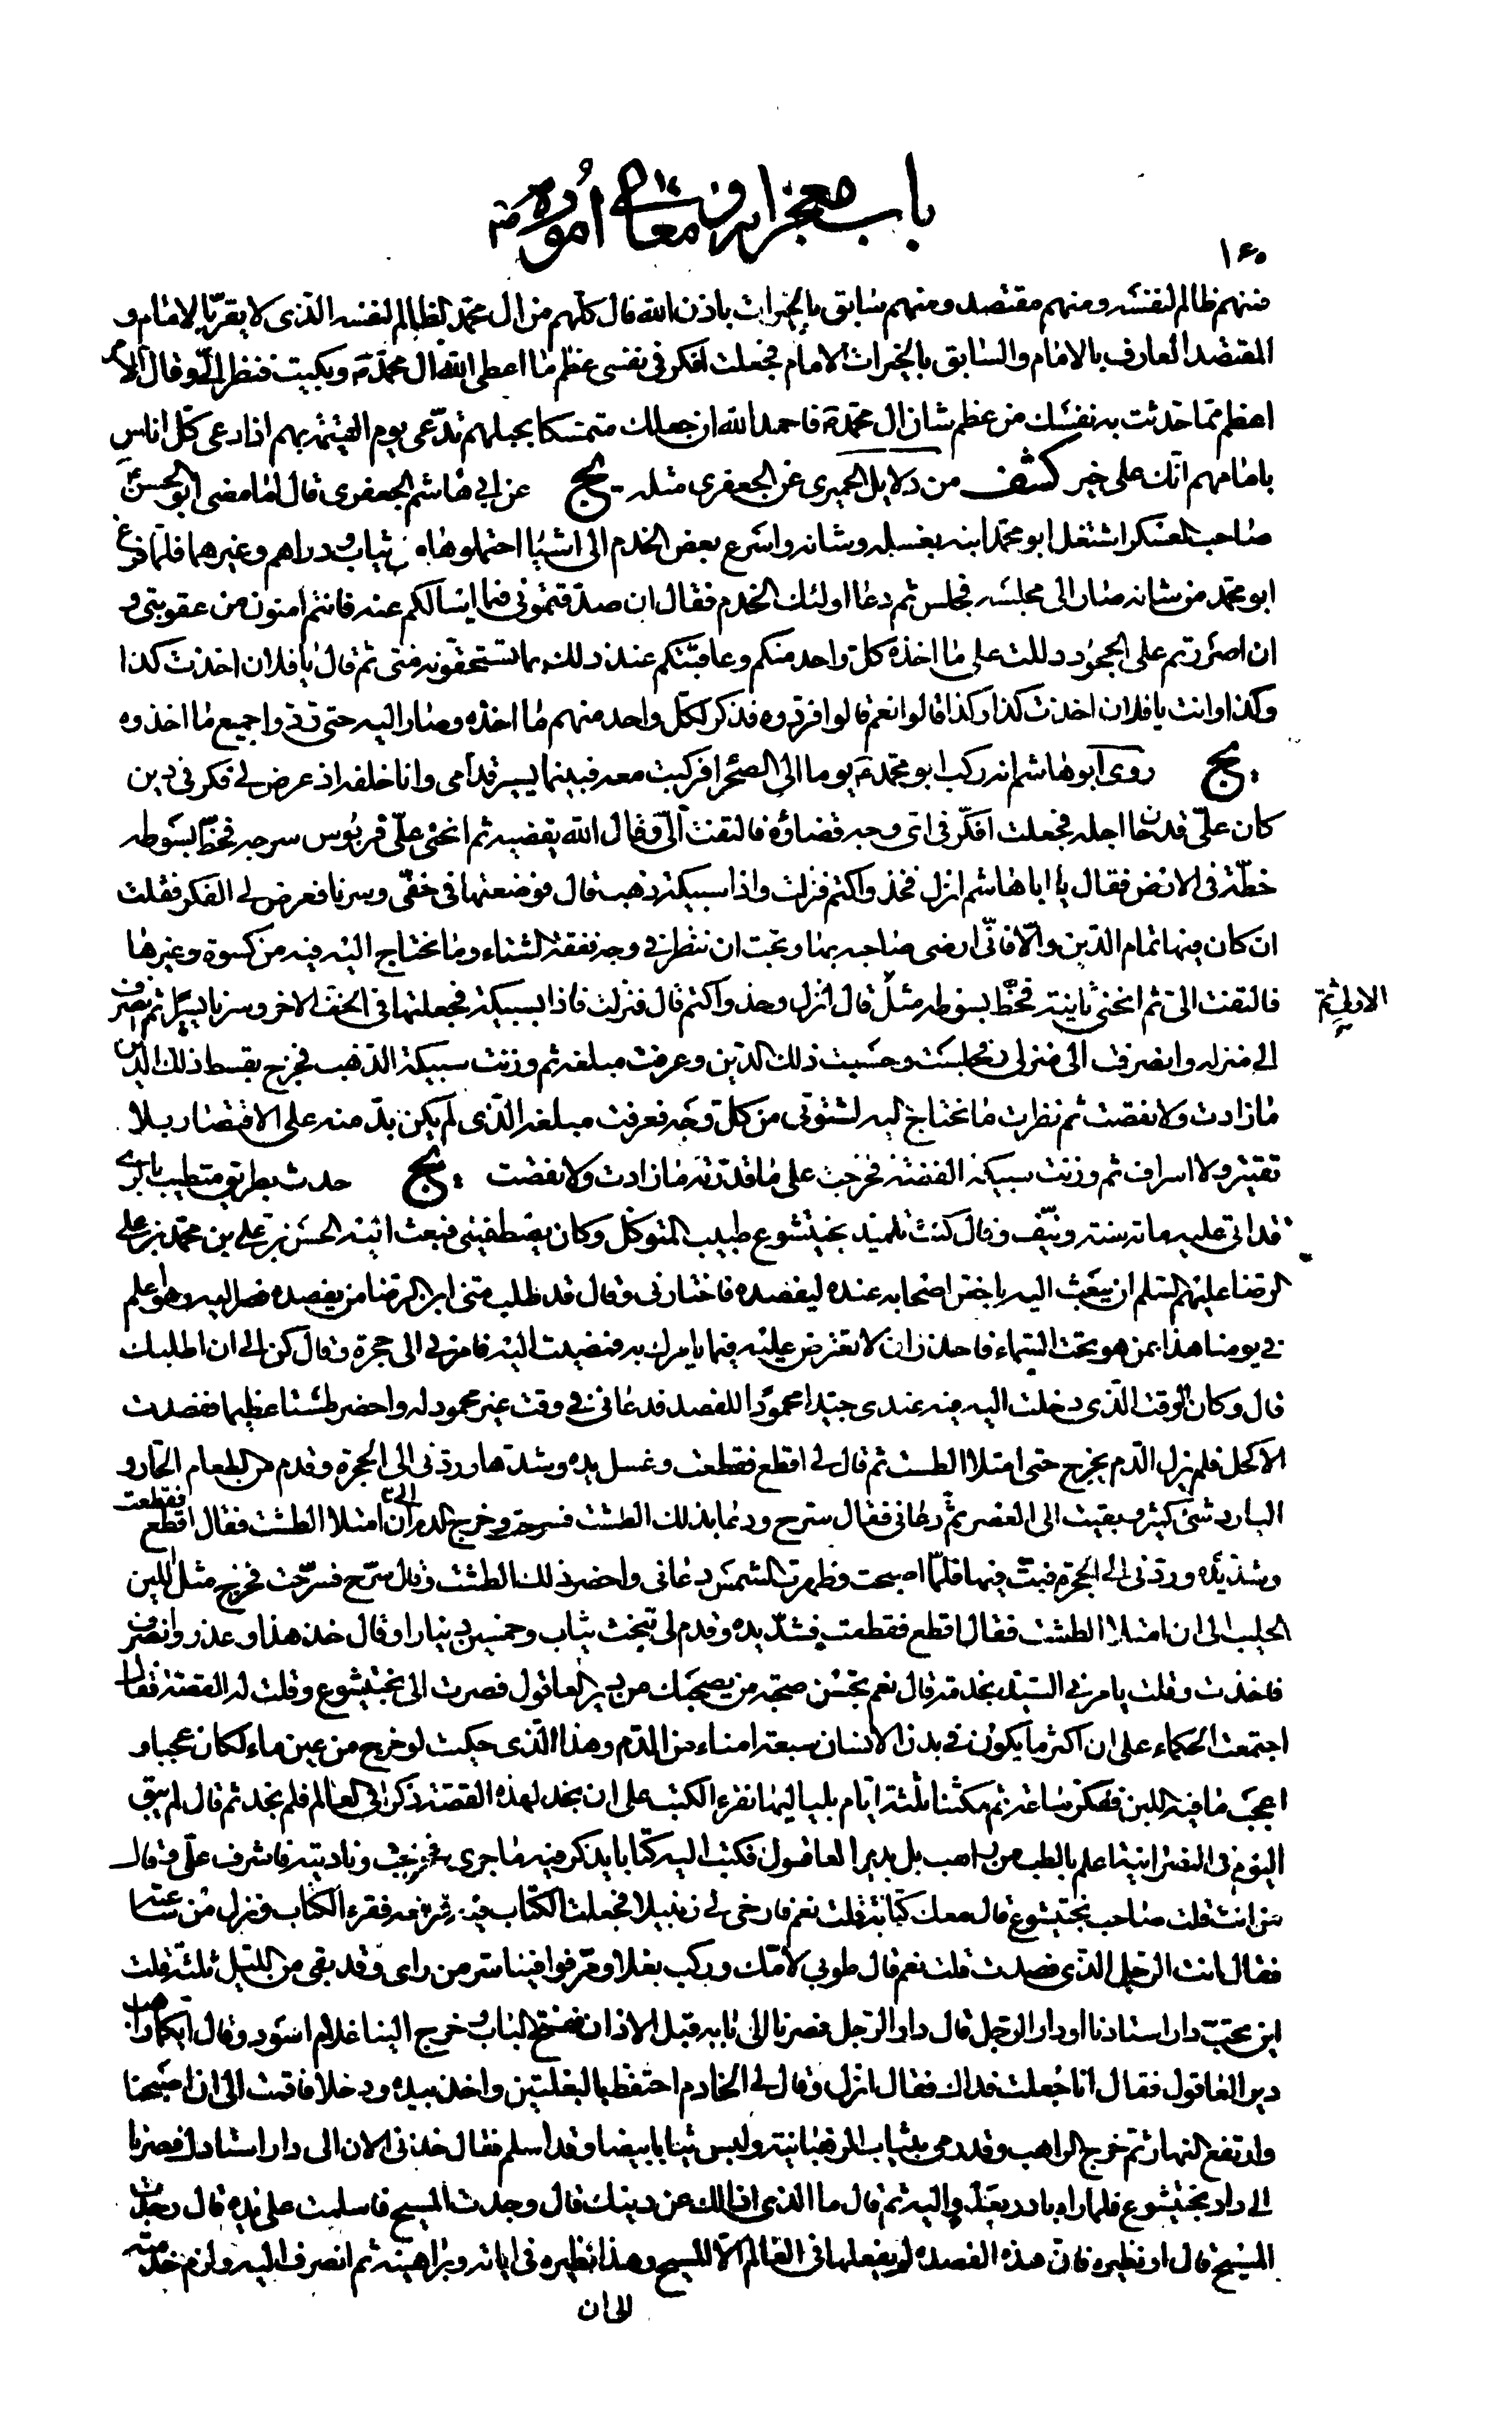 باب معجزاته ومعالي أموره صلوات الله عليه
١٦٠
فمنهم ظالم لنفسه ومنهم مقتصد ومنهم سابق بالخيرات باذن الله قال كلهم من ال محمد الظالم لنفسه الذى لا يقر بالامام و
المقتصد العارف بالامام والسابق بالخيرات الامام فجعلت افكر فى نفسى عظم ما اعطى الله ال محمد ع وبكيت فنظر الىّ وقال الامر
اعظم مما حدثت به نفسك من عظم شان ال محمد ع فاحمد الله ان جعلك متمسكا بحبلهم تدعى يوم القيمة بهم اذا دعى كل اناس
بامامهم انك على خير كشف من دلايل الحميرى عن الجعفرى مثله يج عن ابى هاشم الجعفرى قال لما مضى ابو الحسن ع
صاحب العسكر اشتغل ابو محمد ابنه بغسله وشانه واسرع بعض الخدم الى اشيا احتملوها من ثياب ودراهم وغيرهما فلما فرغ
ابو محمد من شانه صار الى مجلسه فجلس ثم دعا اولئك الخدم فقال ان صدقتمونى فيما اسالكم عنه فانتم امنون من عقوبتى و
ان اصررتم على الجحود دللت على ما اخذه كل واحد منكم وعاقبتكم عند ذلك بما تستحقونه منى ثم قال يا فلان اخذت كذا
وكذا وانت يا فلان اخذت كذا وكذا قالوا نعم قالوا فردوه فذكر لكل واحد منهم ما اخذه وصار اليه حتى ردوا جميع ما اخذوه
يج روى ابو هاشم انه ركب ابو محمد ع يوما الى الصحرا فركبت معه فبينما يسير قدامى وانا خلفه اذ عرض لى فكر فى دين
كان علىّ قد حان اجله فجعلت افكر فى اى وجه قضاؤه فالتفت الىّ وقال الله يقضيه ثم انحنى على قربوس سرجه فخط بسوطه
خطة فى الارض فقال يا ابا هاشم انزل فخذ واكتم فنزلت واذا سبيكة ذهب قال فوضعتها فى خفى وسرنا فعرض لى الفكر فقلت
ان كان فيها تمام الدين والا فانى ارضى صاحبه بها ونحب ان ننظر فى وجه نفقة الشتاء وما نحتاج اليه فيه من كسوة وغيرها
فالتفت الىّ ثم انحنى ثانية فخط بسوطه مثل الاولى ثم قال انزل وخذ واكتم قال فنزلت فاذا بسبيكة فجعلتها فى الخف الاخر وسرنا يسيرا ثم انصرف
الى منزله وانصرفت الى منزلى فجلست وحسبت ذلك الدين وعرفت مبلغه ثم وزنت سبيكة الذهب فخرج بقسط ذلك الدين
ما زادت ولا نقصت ثم نظرت ما نحتاج اليه لشتوتى من كل وجه فعرفت مبلغه الذى لم يكن بد منه على الاقتصاد بلا
تقتير ولا اسراف ثم وزنت سبيكة الفضة فخرجت على ما قدرته ما زادت ولا نقصت يج حدث بطريق متطبب بالرى
قد اتى عليه مائة سنة ونيف وقال كنت تلميذ بختيشوع طبيب المتوكل وكان يصطفينى فبعث اليه الحسن بن على بن محمد بن على
الرضا عليهم السلم ان يبعث اليه باخص اصحابه عنده ليفصده فاختارنى وقال قد طلب منى ابن الرضا من يفصده فصر اليه وهو اعلم
فى يومنا هذا بمن هو تحت السماء فاحذر ان لا تعترض عليه فيما يامرك به فمضيت اليه فامر بى الى حجرة وقال كن الى ان اطلبك
قال وكان الوقت الذى دخلت اليه فيه عندى جيدا محمودا للفصد فدعانى فى وقت غير محمود له واحضر طشتا عظيما ففصدت
الاكحل فلم يزل الدم يخرج حتى امتلا الطست ثم قال لى اقطع فقطعت وغسل يده وشدها وردنى الى الحجرة وقدم من الطعام الحار و
البارد شئ كثير وبقيت الى العصر ثم دعانى فقال سرح ودعا بذلك الطشت فسرحت وخرج الدم الى ان امتلا الطشت فقال اقطع فقطعت
وشد يده وردنى الى الحجرة فبت فيها فلما اصبحت وظهرت الشمس دعانى واحضر ذلك الطشت وقال سرح فسرحت فخرج مثل اللبن
الحليب الى ان امتلا الطشت فقال اقطع فقطعت وشد يده وقدم لى تخت ثياب وخمسين دينارا وقال خذ هذا واعذر وانصرف
فاخذت وقلت يامرنى السيد بخدمة قال نعم تحسن صحبة من يصحبك من دير العاقول فصرت الى بختيشوع وقلت له القصة فقال
اجتمعت الحكماء على ان اكثر ما يكون فى بدن الانسان سبعة امناء من الدم وهذا الذى حكيت لو خرج من عين ماء لكان عجبا و
اعجب ما فيه اللبن ففكر ساعة ثم مكثنا ثلثة ايام بلياليها نقرء الكتب على ان نجد لهذه القصة ذكرا فى العالم فلم نجد ثم قال لم يبق
اليوم فى النصرانية اعلم بالطب من راهب بدير العاقول فكتب اليه كتابا يذكر فيه ما جرى فخرجت وناديته فاشرف علىّ وقال
من انت قلت صاحب بختيشوع قال معك كتابه قلت نعم فارخى لى زنبيلا فجعلت الكتاب فيه فرفعه فقرء الكتاب ونزل من ساعته
فقال انت الرجل الذى فصدت قلت نعم قال طوبى لامك وركب بغلا ومر فوافينا سر من راى وقد بقى من الليل ثلثه قلت
اين تحب دار استادنا او دار الرجل قال دار الرجل فصرنا الى بابه قبل الاذان ففتح الباب وخرج الينا غلام اسود وقال ايكما راهب
دير العاقول فقال انا جعلت فداك فقال انزل وقال لى الخادم احتفظ بالبغلتين واخذ بيده ودخلا فاقمت الى ان اصبحنا
وارتفع النهار ثم خرج الراهب وقد رمى بثياب الرهبانية ولبس ثيابا بيضا وقد اسلم فقال خذنى الان الى دار استادك فصرنا
الى دار بختيشوع فلما راه بادر يعدو اليه ثم قال ما الذى ازالك عن دينك قال وجدت المسيح فاسلمت على يده قال وجدت
المسيح قال او نظيره فان هذه الفصدة لم يفعلها فى العالم الا المسيح وهذا نظيره فى اياته وبراهينه ثم انصرف اليه ولزم خدمته
الى ان